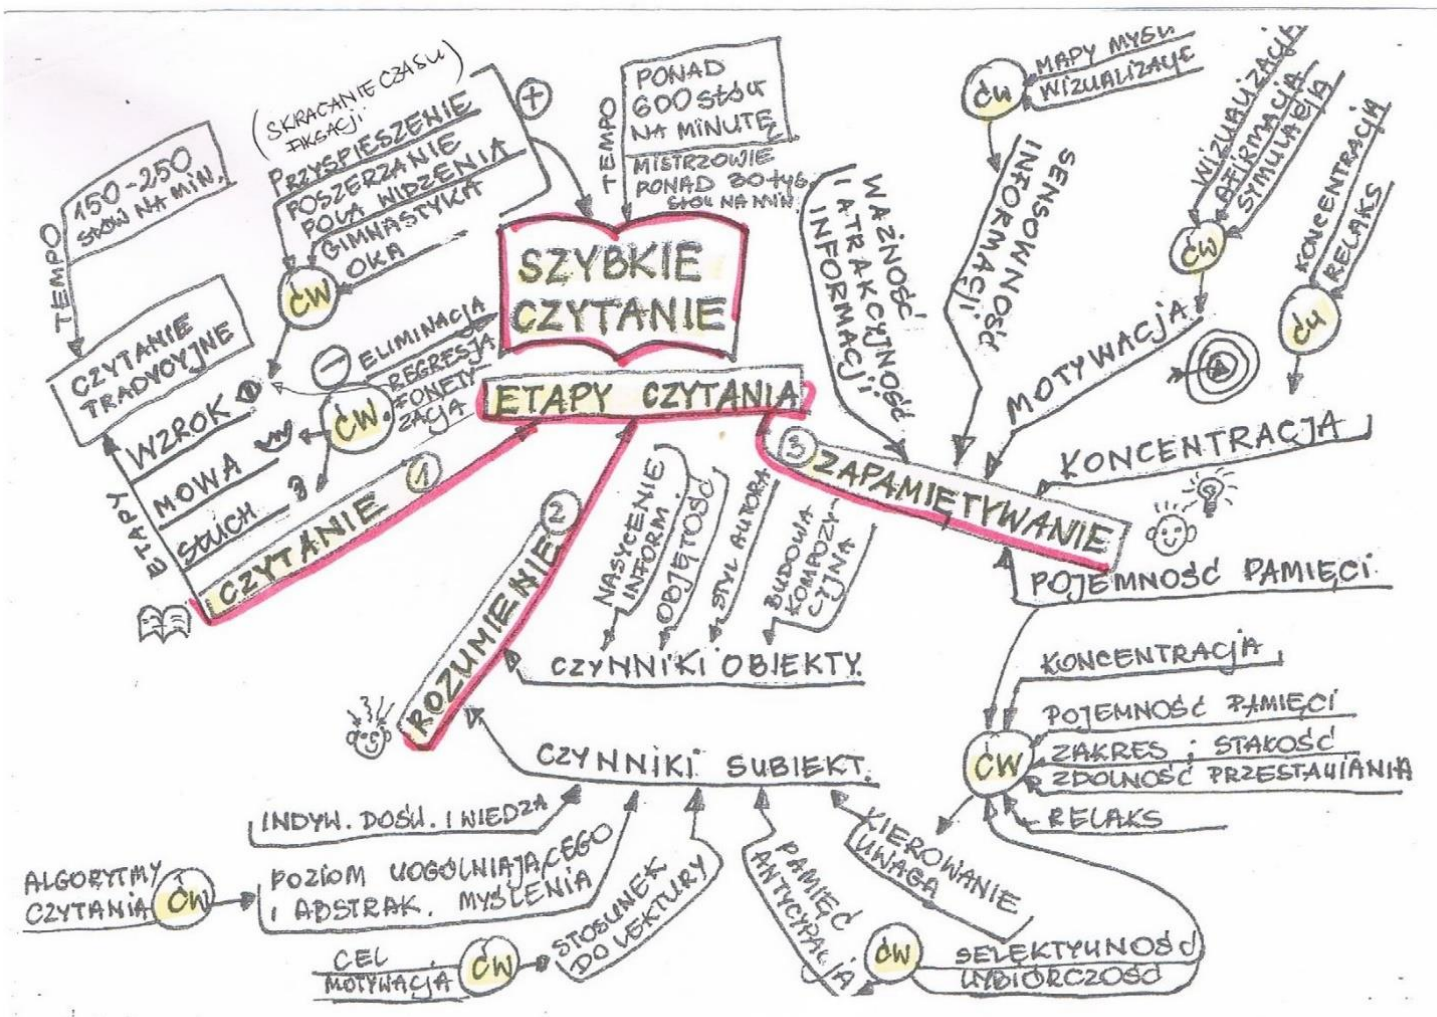 SZYBKIE
CZYTANIE
ETAPY CZYTANIA
TEMPO
PONAD
600 słów
NA MINUTĘ
MISTRZOWIE
PONAD 30 tyś.
słów NA MIN.
+
(SKRACANIE CZASU)
FIKSACJI
PRZYSPIESZENIE
POSZERZANIE
POLA WIDZENIA
GIMNASTYKA
OKA
ĆW
150-250
słów NA MIN.
TEMPO
CZYTANIE
TRADYCYJNE
–
ELIMINACJA
REGRESJA
FONETY
ZACJA
ĆW.
WZROK
MOWA
SŁUCH
ETAPY
CZYTANIE 1
ROZUMIENIE 2
NASYCENIE
INFORM.
OBJĘTOŚĆ
STYL AUTORA
BUDOWA
KOMPOZY-
CYJNA
CZYNNIKI OBIEKTY.
CZYNNIKI SUBIEKT.
INDYW. DOŚW. I WIEDZA
ALGORYTMY
CZYTANIA
ĆW
POZIOM UOGÓLNIAJĄCEGO
I ABSTRAK. MYŚLENIA
CEL
MOTYWACJA
ĆW
STOSUNEK
DO LEKTURY
PAMIĘĆ
ANTYCYPACJA
KIEROWANIE
UWAGĄ
ĆW
SELEKTYWNOŚĆ
WYBIÓRCZOŚĆ
3 ZAPAMIĘTYWANIE
WAŻNOŚĆ
I ATRAKCYJNOŚĆ
INFORMACJI
SENSOWNOŚĆ
INFORMACJI
ĆW
MAPY MYŚLI
WIZUALIZACJE
MOTYWACJA
ĆW
WIZUALIZACJA
AFIRMACJA
SYMULACJA
KONCENTRACJA
RELAKS
ĆW
KONCENTRACJA
POJEMNOŚĆ PAMIĘCI
KONCENTRACJA
POJEMNOŚĆ PAMIĘCI
ĆW
ZAKRES ; STAŁOŚĆ
ZDOLNOŚĆ PRZESTAWIANIA
RELAKS